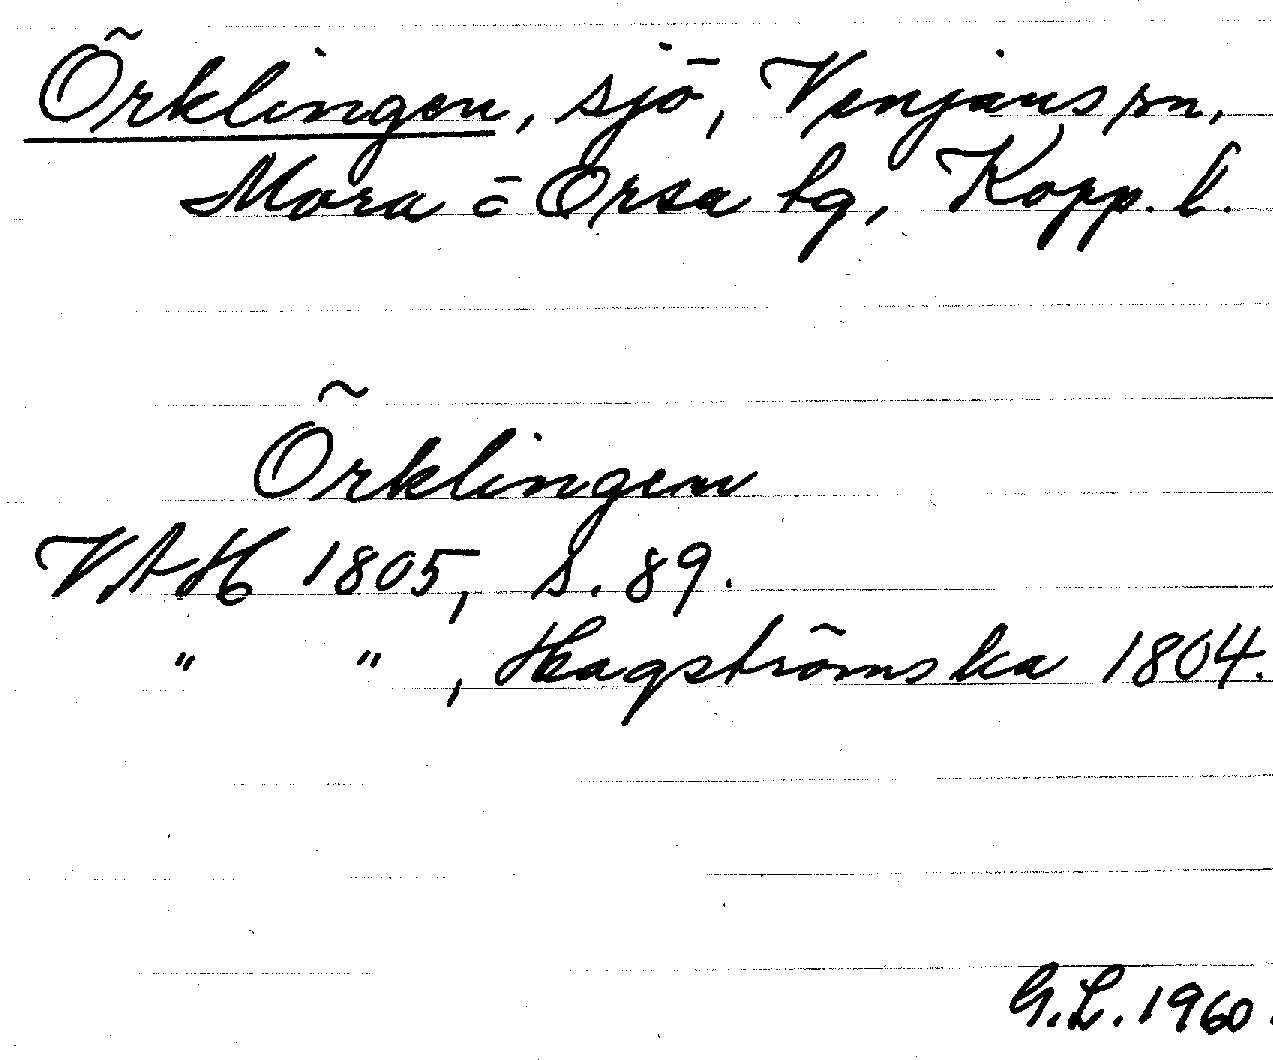 Örklingen, sjö, Venjans sn,
Mora o Orsa tg, Kopp. l.
Örklingen
VAH 1805, s. 89.
" ", Hagströmska 1804.
G.L. 1960.